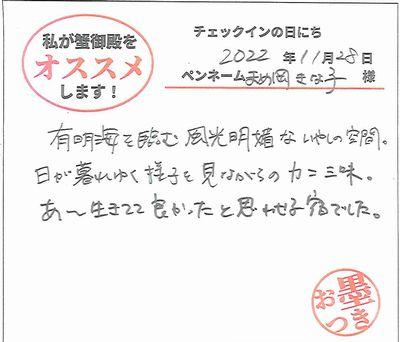 私が蟹御殿を
オススメ
します！
チェックインの日にち
2022 年 11月 28日
ペンネーム まめ岡 きな子 様
有明海を臨む 風光明媚な いやしの空間。
日が暮れゆく様子を見ながらのカニ三昧。
あ〜生きてて良かったと思わせる宿でした。
お墨つき